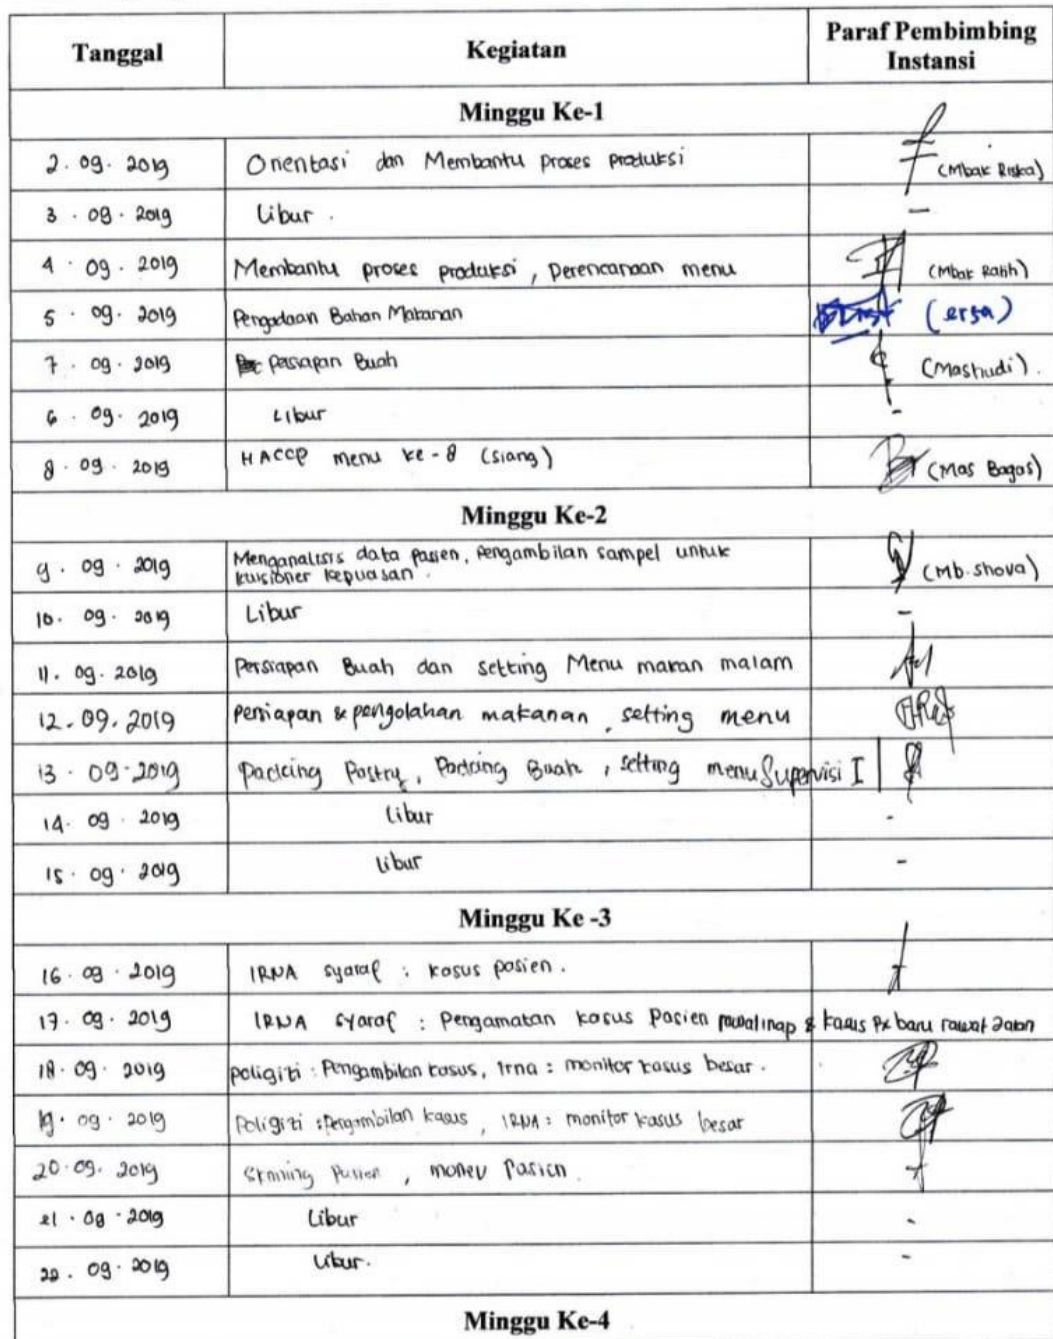 Tanggal Kegiatan Paraf Pembimbing Instansi
Minggu Ke-1
2. 09. 2019 Orientasi dan Membantu proses produksi (Mbak Riska)
3 . 09 . 2019 Libur . -
4 . 09 . 2019 Membantu proses produksi , perencanaan menu (Mbak Ratih)
5 . 09. 2019 Pengadaan Bahan Makanan (ersa)
7 . 09. 2019 Persiapan Buah (Mashudi) .
6 . 09. 2019 Libur -
8 . 09 . 2019 HACCP menu ke-8 (siang) (Mas Bagas)
Minggu Ke-2
9 . 09 . 2019 Menganalisis data pasien, pengambilan sampel untuk
kuisioner kepuasan . (Mb. shova)
10. 09. 2019 Libur -
11. 09. 2019 Persiapan Buah dan setting Menu makan malam
12. 09. 2019 persiapan & pengolahan makanan , setting menu
13 . 09 - 2019 Packing Pastry, Packing Buah , setting menu Supervisi I
14. 09 . 2019 Libur -
15 . 09 . 2019 Libur -
Minggu Ke -3
16 . 09 . 2019 IRNA syaraf : kasus pasien .
17 . 09 . 2019 IRNA syaraf : Pengamatan kasus Pasien rawat inap & kasus Px baru rawat Jalan
18 . 09 . 2019 poligizi : Pengambilan kasus, Irna : monitor kasus besar .
19 . 09 . 2019 Poligizi : Pengambilan kasus , IRNA : monitor kasus besar
20. 09. 2019 Skrining Pasien , monev Pasien .
21 . 09 . 2019 Libur -
22 . 09 . 2019 Libur. -
Minggu Ke-4